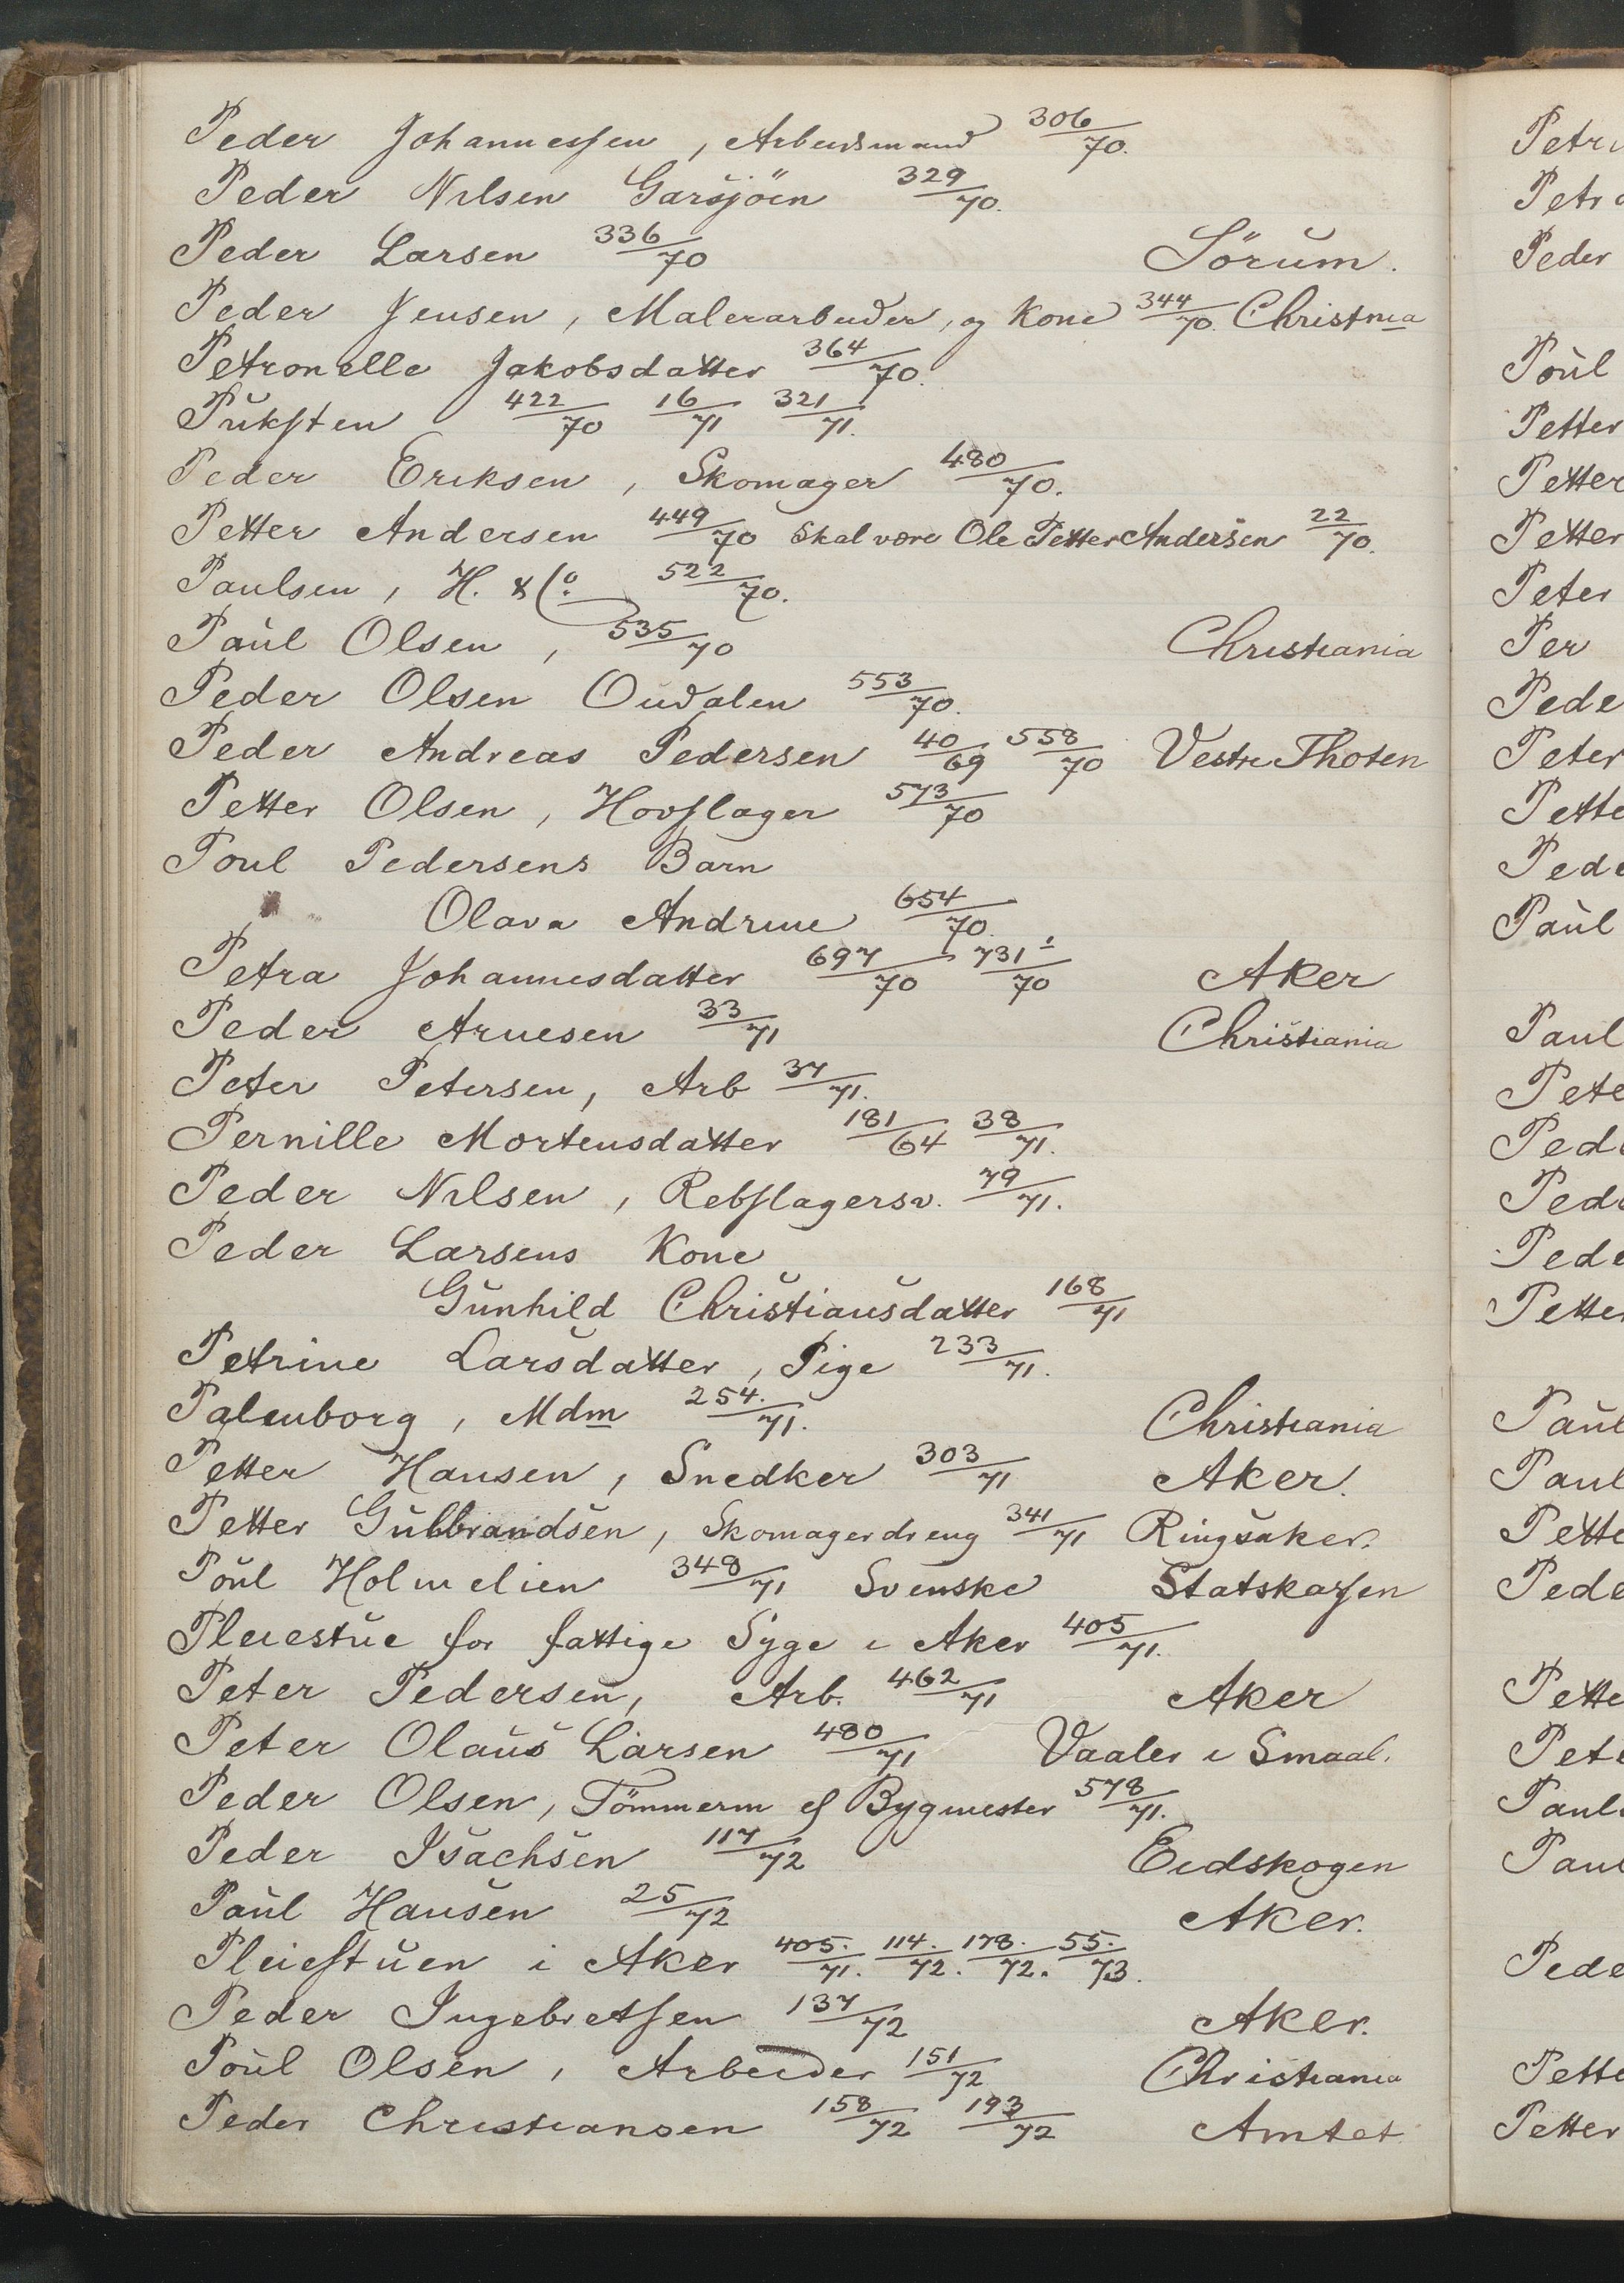 Peder Johannessen, Arbeidsmand 306/70.
Peder Nilsen Garsjöen 329/70.
Peder Larsen 336/70 Sörum.
Peder Jensen, Malerarbeider, og Kone 344/70. Christnia
Petronelle Jakobsdatter 364/70.
Puksten 422/70 16/71 321/71.
Peder Eriksen, Skomager 480/70.
Petter Andersen 449/70 Skal være Ole Petter Andersen 22/70.
Paulsen, H. & Co. 522/70.
Paul Olsen, 535/70 Christiania
Peder Olsen Oudalen 553/70.
Peder Andreas Pedersen 40/69 558/70 Vestre Thoten
Petter Olsen, Hovslager 573/70
Poul Pedersens Barn
Olava Andrine 654/70.
Petra Johannesdatter 697/70 731/70 Aker
Peder Arnesen 33/71 Christiania
Peter Petersen, Arb 37/71.
Pernille Mortensdatter 181/64 38/71.
Peder Nilsen, Rebslagersv. 79/71.
Peder Larsens Kone
Gunhild Christiansdatter 168/71
Petrine Larsdatter, Pige 233/71.
Palmborg, Mdm 254./71. Christiania
Petter Hansen, Snedker 303/71 Aker.
Petter Gulbrandsen, Skomagerdreng 341/71 Ringsaker.
Poul Holmelien 348/71 Svenske Statskassen
Pleiestue for fattige Syge i Aker 405/71.
Peter Pedersen, Arb. 462/71 Aker
Peter Olaus Larsen 480/71 Vaaler i Smaal.
Peder Olsen, Tömmerm og Bygmester 578/71.
Peder Isachsen 117/72 Eidskogen
Paul Hansen 25/72 Aker.
Pleiestuen i Aker 405./71. 114./72. 178./72. 55./73.
Peder Ingebretsen 137/72 Aker.
Poul Olsen, Arbeider 151/72 Christiania
Peder Christiansen 158/72 193/72 Amtet
Peder
Poul
Petter
Petter
Petter
Peter
Per
Peter
Paul
Paul
Petter